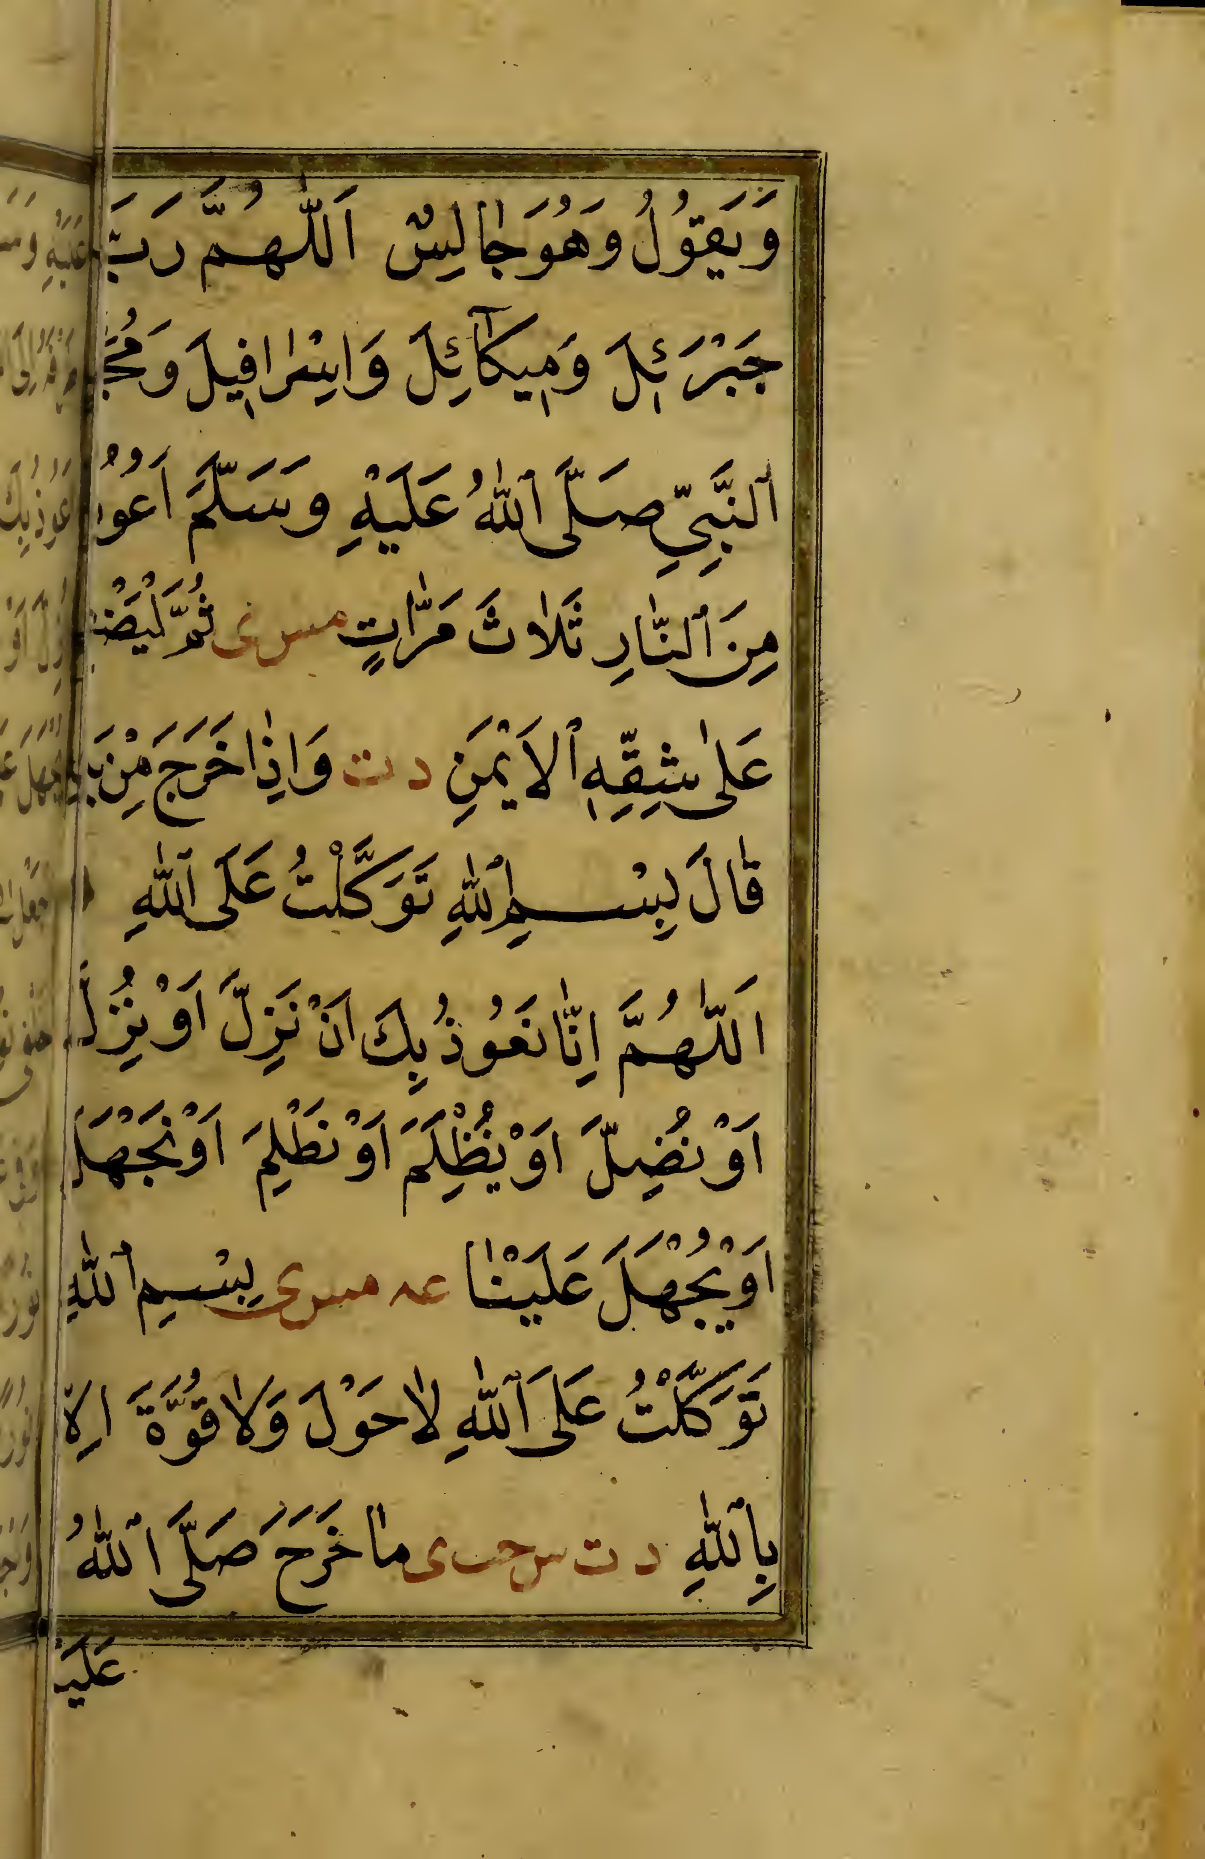 وَيَقُولُ وَهُوَ جَالِسٌ اَللّٰهُمَّ رَبَّ
جَبْرَئِلَ وَمِيكَآئِلَ وَاِسْرَافِيلَ وَمُحَمَّدٍ
ٱلنَّبِيِّ صَلَّى ٱللّٰهُ عَلَيْهِ وَسَلَّمَ اَعُوذُ
مِنَ ٱلنَّارِ ثَلَاثَ مَرَّاتٍ مس ى ثُمَّ لْيَضْطَجِعْ
عَلٰى شِقِّهِ ٱلاَيْمَنِ د ت وَاِذَا خَرَجَ مِنْ
قَالَ بِسْمِ ٱللّٰهِ تَوَكَّلْتُ عَلَى ٱللّٰهِ
اَللّٰهُمَّ اِنَّا نَعُوذُ بِكَ اَنْ نَزِلَّ اَوْ نُزِلَّ
اَوْ نُضِلَّ اَوْ يُظْلَمَ اَوْ نَظْلِمَ اَوْ نَجْهَلَ
اَوْ يُجْهَلَ عَلَيْنَا عه مس ى بِسْمِ ٱللّٰهِ
تَوَكَّلْتُ عَلَى ٱللّٰهِ لَا حَوْلَ وَلَا قُوَّةَ اِلَّا
بِٱللّٰهِ د ت س حب ى مَا خَرَجَ صَلَّى ٱللّٰهُ
عَلَيْهِ